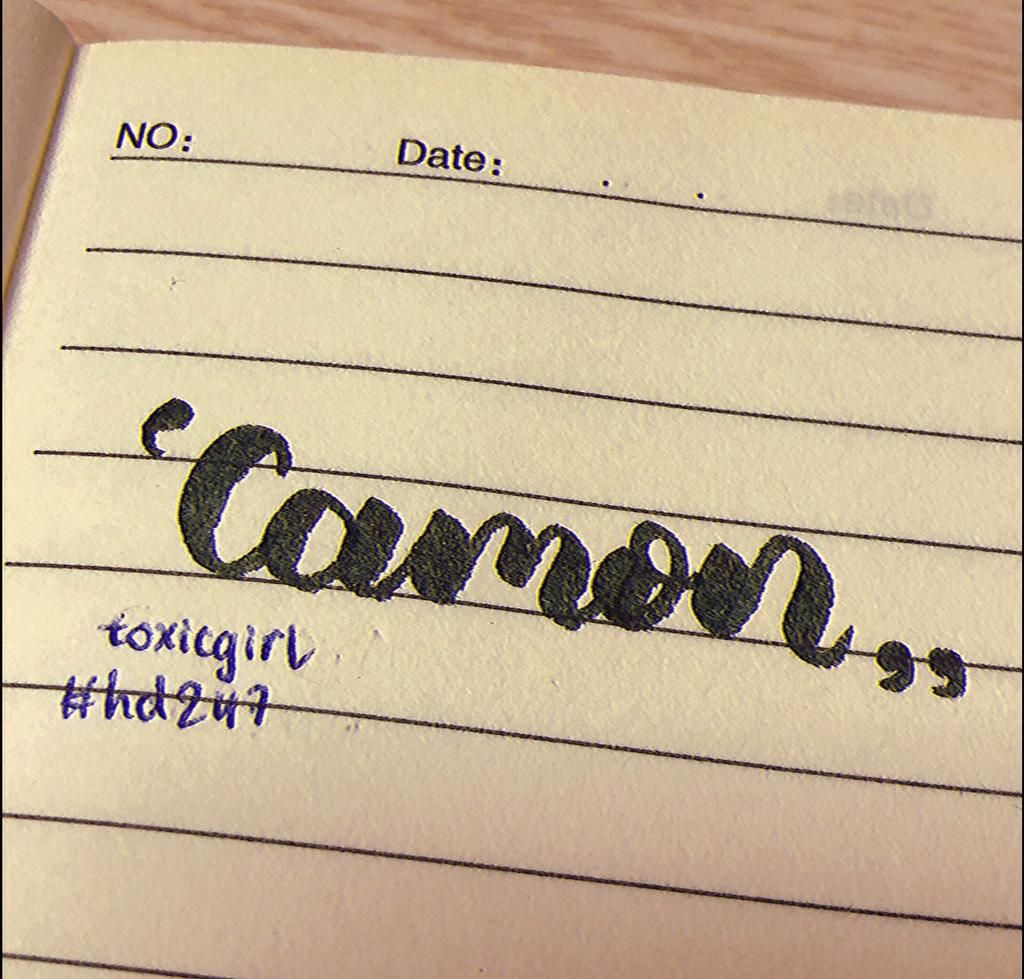 NO: Date: . .
‘Camon,,
toxicgirl
#hd247